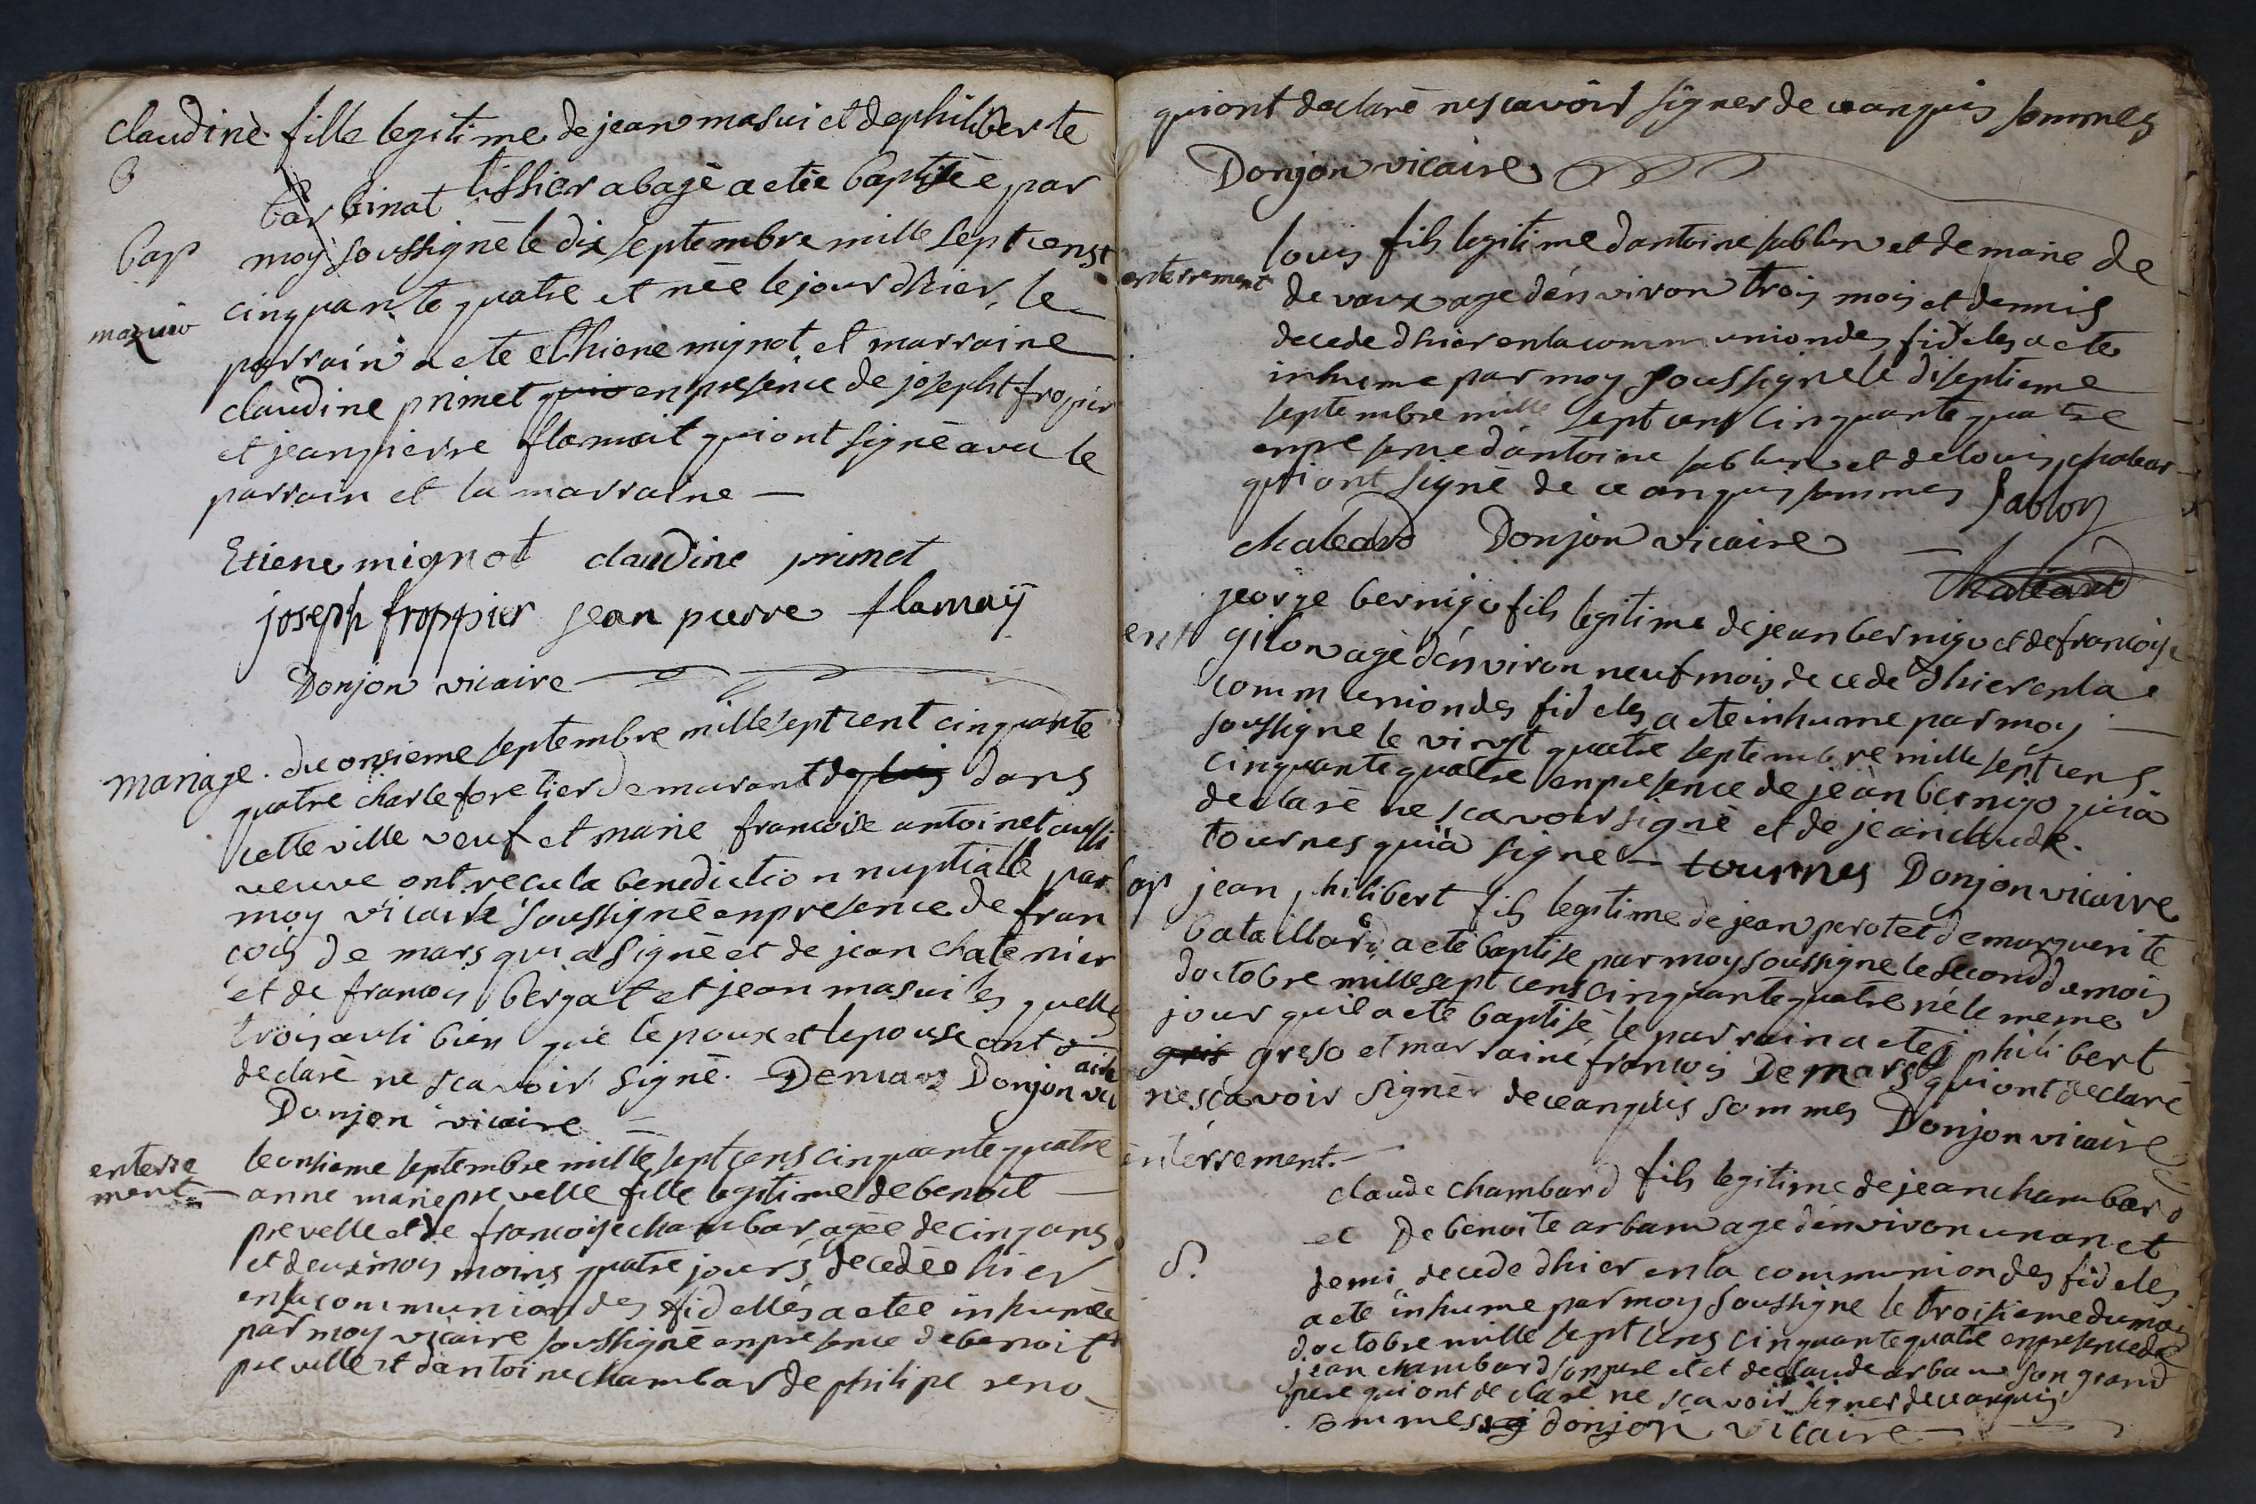 claudinè fille legitime de jean masui et de philiberte
B
barbinat tissier a bagé a etée baptisée par
Bap moy soussigné le dix septembre mille sept cens
cinquante quatre et née le jour d'hier, le
mazuio
parrain a ete ethiene mignot et marraine
claudine primet en presence de josepht fropier
et jean pierre flamait qui ont signé avec le
parrain et la marraine —
Etiene mignot claudine primet
joseph froppier jean pierre flamaÿ
Donjon vicaire
mariage. du onsieme septembre mille sept cent cinquante
quatre charle foretier demurant depluis dans
cette ville veuf et marie francoise antoinet aussi
veuve ont recu la benediction nuptialle par
moy vicaire soussigné en presence de fran
cois de mars qui a signé et de jean chatenier
et de francois bergat et jean masui les quells
trois ausi bien que lepoux et lepouse ont
declaré ne scavoir signé. Demars Donjon vicaire
Donjon vicaire —
enterre
ment —
le onsieme septembre mille sept cens cinquante quatre
anne marie prevelle fille legitime de benoit —
prevelle et de francoise chambar agée de cinq ans
et deux mois moins quatre jours decedée hier
en la communion des fidellés a etée inhumée
par moy vicaire soussigné en presence de benoit
prevelle et dantoine chambar de philipe reno_
qui ont declaré ne scavoir signer de ce anquis sommes
Donjon vicaire
enterrement
louis fils legitime dantoine sablon et de marie de
de vaux age d'environ trois mois et demis
decede dhier en la communion des fideles a ete
inhume par moy soussigné le diseptieme
septembre mille sept cens cinquante quatre
en presence d'antoine sablon et de louis chalear
qui ont signé de ce anquis sommes Sablon
chaleard Donjon vicaire —
chaleard
ent
jeorge bernigo fils legitime de jean bernigo et de francoise
gilon agé d'environ neuf mois decede d'hier en la
communion des fideles a ete inhume par moy —
soussigne le vingt quatre septembre mille sept cens
cinquante quatre en presence de jean bernigo qui a
declaré ne scavoir signé et de jean claude
tournes qui a signé — tournes Donjon vicaire
bap jean philibert fils legitime de jean perotet de marguerite
bataillard a ete baptise par moy soussigne le second du mois
doctobre mille sept cens cinquante quatre né le meme
jour quil a ete baptisé le parrain a ete philibert
gris greso et marraine francois Demars qui ont declaré
ne scavoir signér de ce anquis sommes Donjon vicaire
enterrement. —
claude chambard fils legitime de jean chambard
et De benoite arbam age d'environ un an et
S.
demi decede dhier en la communion des fideles
a ete inhume par moy soussigne le troisieme du mois
doctobre mille sept cens cinquante quatre en presence de
jean chambard son pere et et de claude arbam son grand
pere qui ont declaré ne scavoir signer de ce anquis
sommes donjon vicaire —